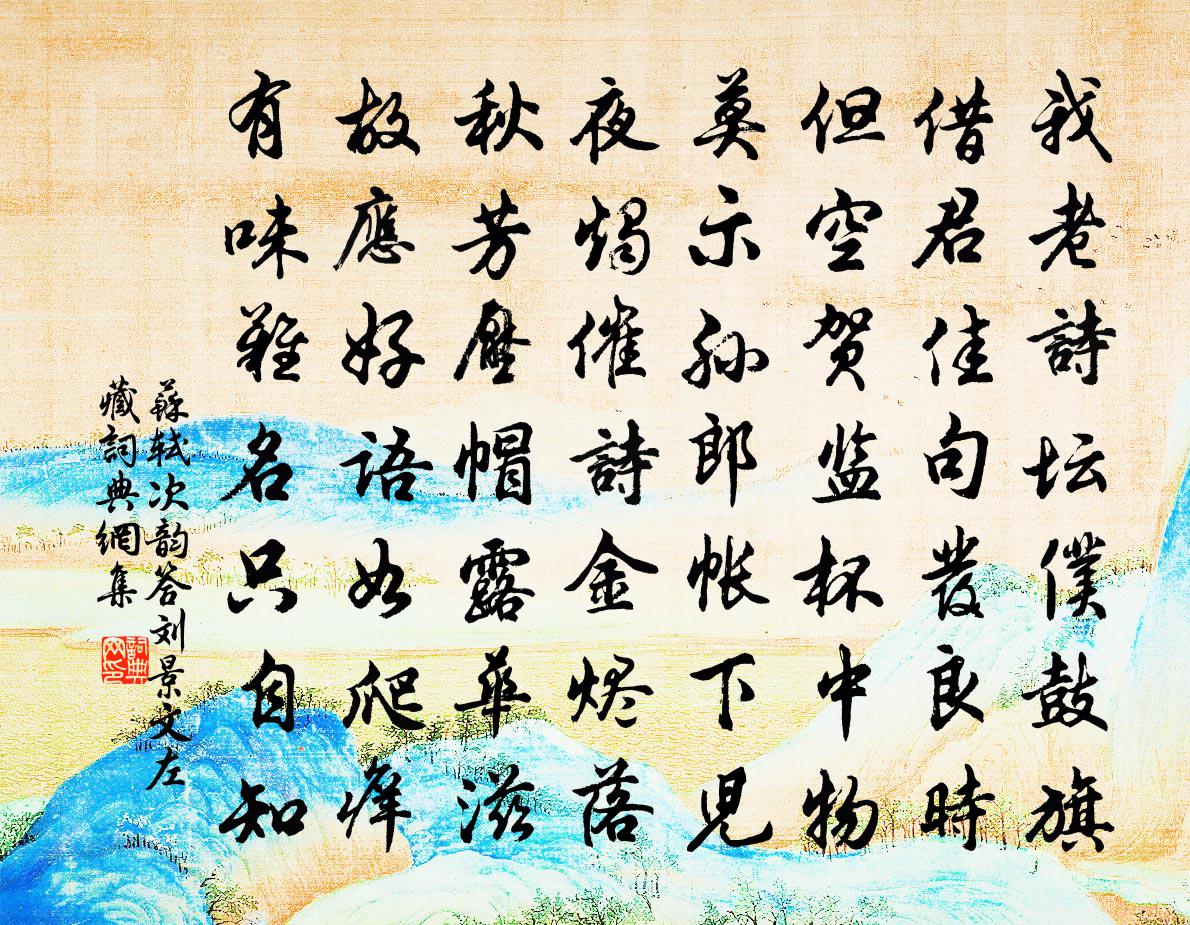 我老詩坛僕鼓旗
借君佳句發良時
但空贺监杯中物
莫示孙郎帐下児
夜燭催詩金烬落
秋芳壓帽露華滋
故應好語如爬痒
有味難名只自知
蘇轼次韵答刘景文左
藏詞典網集